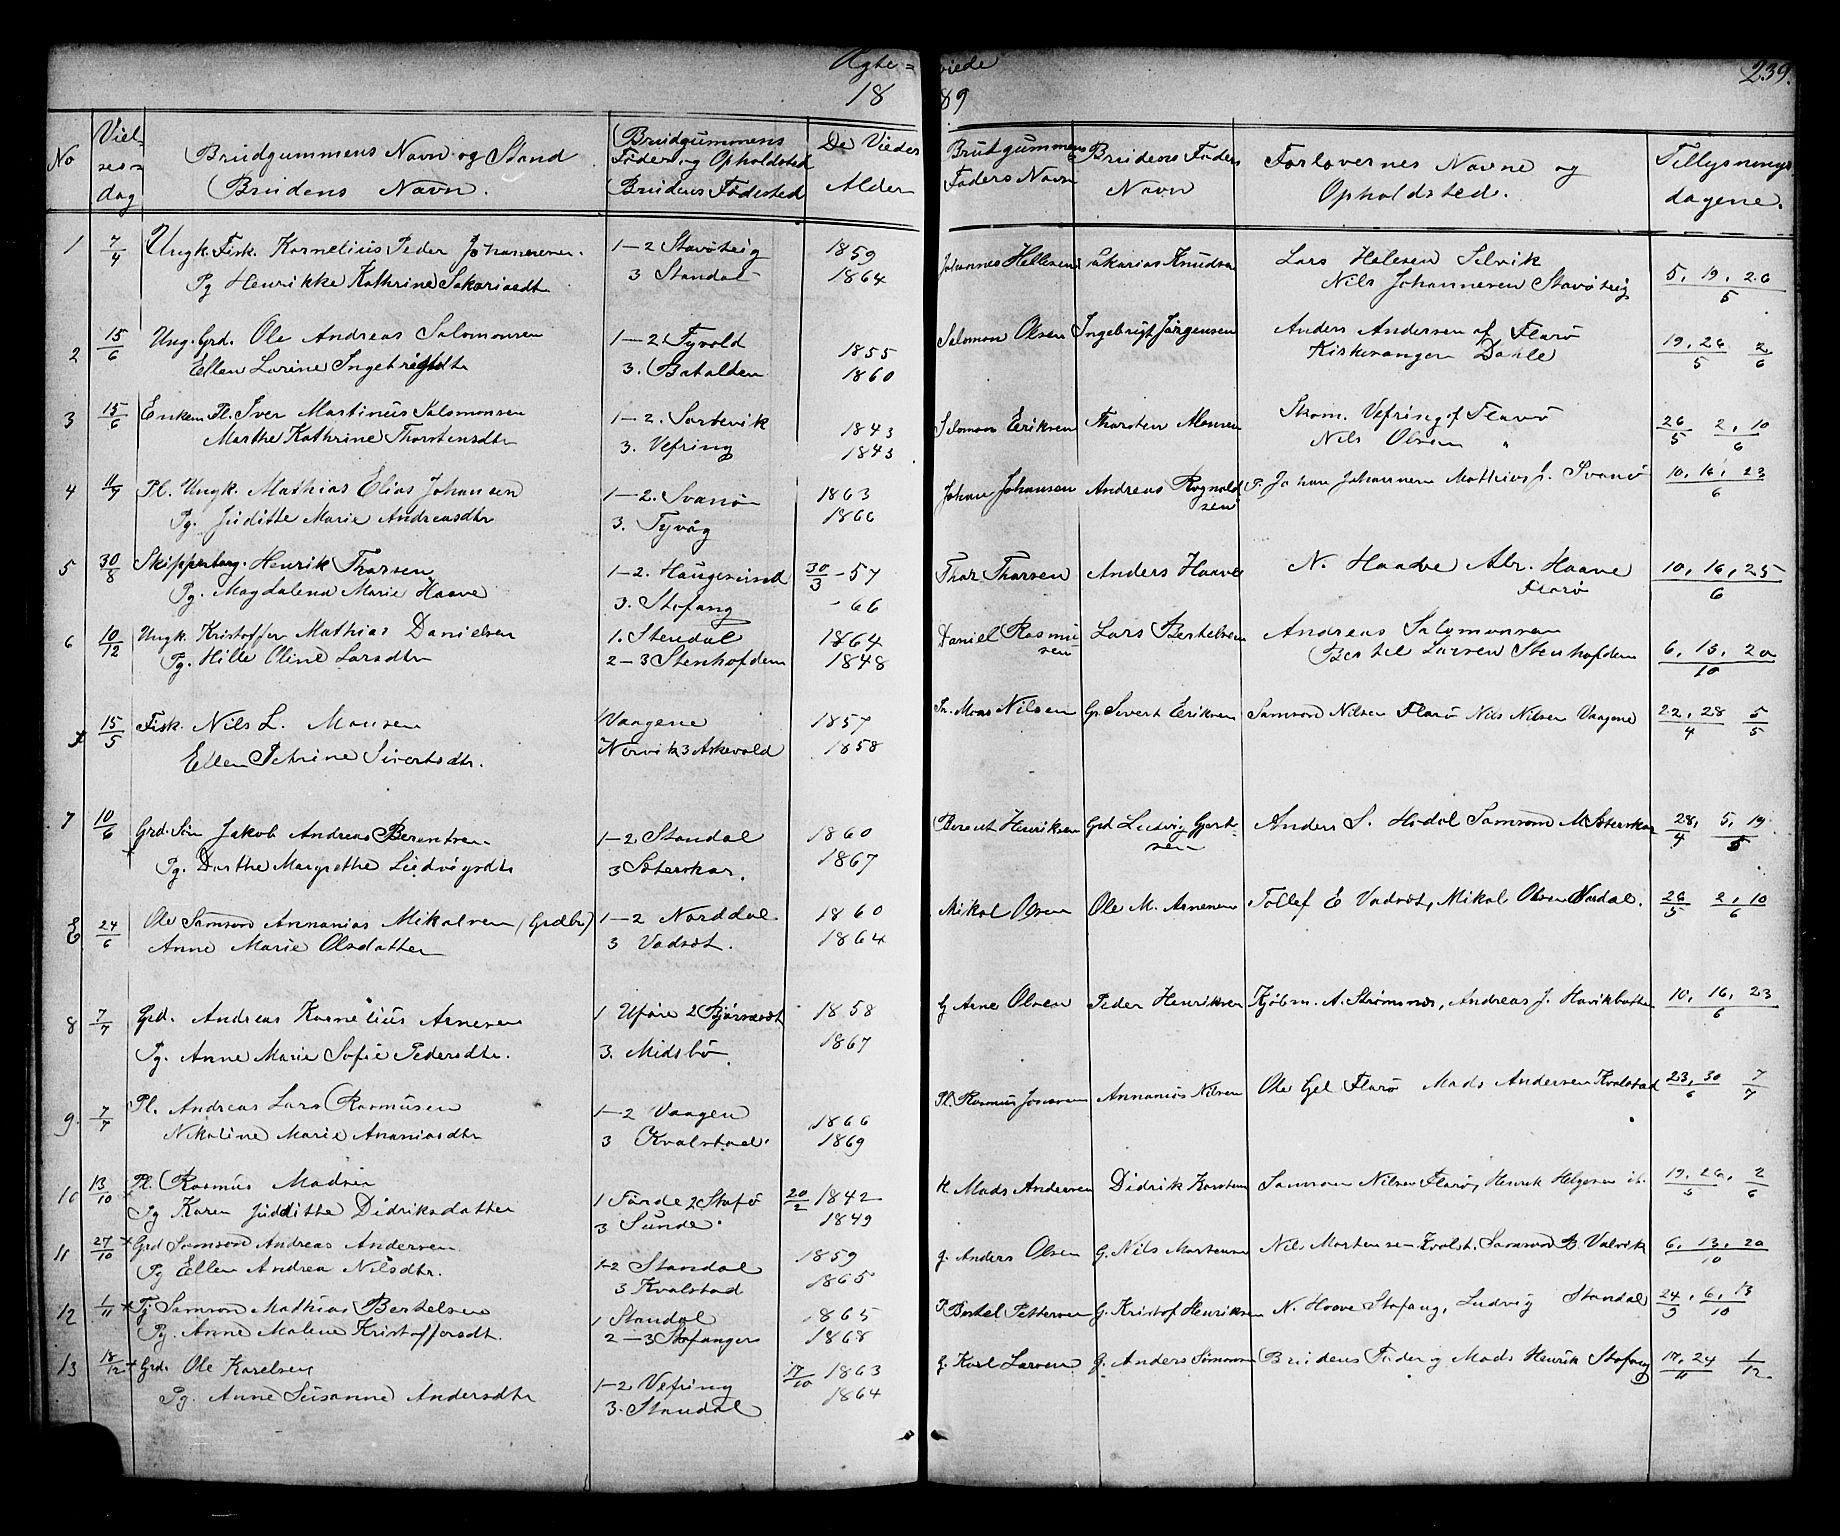 Ægte= viede 239.
18 89
No
Viel-
ses=
dag
Brudgummens Navn og Stand
Brudens Navn.
Brudgummens
Føde og Opholdsted
Brudens Fødested
De Viedes
Alder
Brudgummens
Faders Navn
Brudens Faders
Navn
Forlovernes Navne og
Opholdsted.
Tillysnings
dagene.
1 7/4 Ungk. Fisk. Kornelius Peder Johannesen. 1-2 Stavøteig 1859 Johannes Hellesen Sakarias Knudsen Lars Helesen Selvik 5, 19, 26/5
Pg Henrikke Kathrine Sakariasdtr 3 Standal 1864 Nils Johannesen Stavøteig
2 15/6 Ung. Grd. Ole Andreas Salomonsen 1-2 Tyvold 1855 Salomon Olsen Ingebrigt Jørgensen Anders Andersen af Florø 19, 26/5 2/6
Ellen Lorine Ingebrigtsdtr 3. Batalden 1860 Dahle
3 15/6 Enkem Pl. Iver Martinus Salomonsen 1-2. Sordevik 1843 Salomon Eriksen Thorsten Monsen Skom. Vefring af Florø 26/5 2, 10/6
Marthe Kathrine Thorstensdtr 3. Vefring 1843 Nils Olsen "
4 11/7 Pl. Ungk. Mathias Elias Johansen 1-2. Svanø 1863 Johan Johansen Andreas Rognald sen P. Johan Johannesen Mathias J. Svanø 10, 16, 23/6
Pg. Juditte Marie Andreasdtr 3. Tyvåg 1866
5 30/8 Skipperborg. Henrik Thorsen 1-2. Haugesund 30/3 - 57 Thor Thorsen Anders Haave N. Haave Abr. Haave 10, 16, 25/6
Pg. Magdalena Marie Haave 3. Stofang - 66 Florø
6 10/12 Ungk. Kristoffer Mathias Danielsen 1. Stendal 1864 Daniel Rasmu sen Lars Bertelsen Andreas Salomonsen 6, 13, 20/10
Pg. Hille Oline Larsdtr 2-3 Stenhofden 1848 Bertel Larsen Stenhofden
15/5 Fisk. Nils L. Monsen Vaagene 1857 Mons Nilsen Gr Sivert Eriksen Samson Nilsen Florø Nils Nilsen Vaagene 22, 28/4 5/5
Ellen Petrine Sivertsdtr. Norvik 3 Askevold 1858
7 10/6 Grd. Søn Jakob Andreas Berentsen 1-2 Standal 1860 Berent Henriksen Grd Ludvig Gjert- sen Anders S. Hodal Samson M. Soterskar 28,/4 5, 19/5
Pg. Dorthe Margrethe Ludvigsdtr 3 Soterskar. 1867
24/6 Ole Samson Annanias Mikalsen (Grdbr) 1-2 Norddal 1860 Mikal Olsen Ole M. Arnesen Tollef E Vadset, Mikal Olsen Nordal. 26/5 2, 10/6
Anne Marie Olsdatter 3 Vadset. 1864
8 7/7 Grd. Andreas Kornelius Arnesen 1 Uføre 2 Bjørnset 1858 G Arne Olsen Peder Henriksen Kjøbm. A. Strømsnes, Andreas J. Havikbotten 10, 16, 23/6
Pg. Anne Marie Sofie Pedersdtr. 3. Midsbø. 1867
9. 7/7 Pl. Andreas Lars Rasmusen 1-2 Vaagen 1866 Pl. Rasmus Jonsen Annanias Nilsen Ole Gel Florø Mads Andersen Kvalstad 23, 30/6 7/7
Nikoline Marie Ananiasdtr 3 Kvalstad. 1869
10 13/10 Pl. Rasmus Madsen 1 Førde 2 Stofø 20/2 1842 H. Mads Andersen Didrik Karstens Samson Nilsen Florø, Henrik Helgesen ib. 19, 26,/5 2/6
Pg Karen Juditte Didriksdatter 3 Sunde. 1849
11 27/10 Grd Samson Andreas Andersen. 1-2 Standal 1859 g. Anders Olsen G. Nils Mortensen Nils Mortensen Kvalst. Samson B. Valvik 6, 13, 20/10
Pg Ellen Andrea Nilsdtr. 3 Kvalstad 1865
12 1/11 Tj Samson Mathias Bertelsen 1 Standal 1865 P. Bertel Pettersen G. Kristof Henriksen N. Haave Stofang, Ludvig Standal 24/9, 6, 13/10
Pg. Anne Malene Kristoffersdt. 2-3 Stofanger 1868
13 18/12 Grd. Ole Karelsen 1-2 Vefring 17/10 1863 G. Karl Larsen G. Anders Simonsen Brudens Fader og Mads Henrik Stofang 17, 24/11 1/12
Pg. Anne Susanne Andersdtr 3. Standal 1864